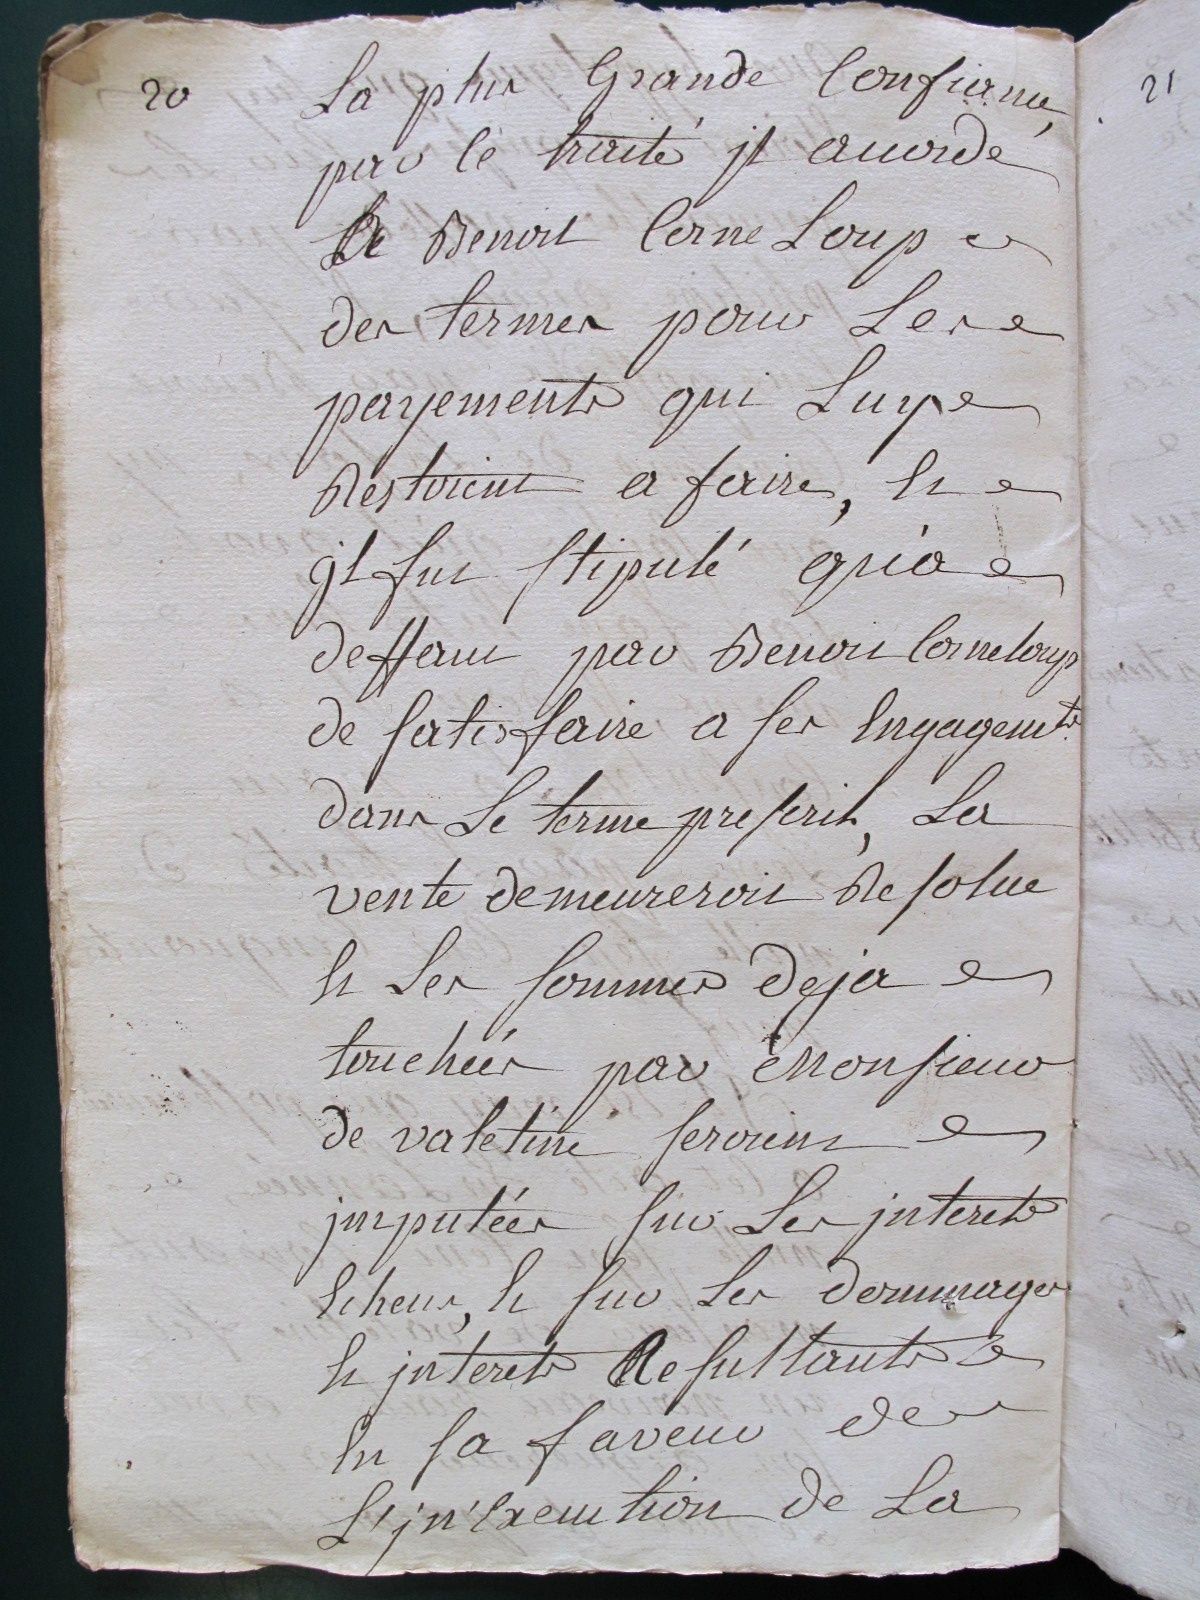 20
La plus Grande Confiance,
par le traité jl accorde
a Benoit Corne Loup
des termes pour Les
payements qui Luy
Restoient a faire, Et
jl fut stipulé qu'a
deffaut par Benoit Corneloup
de satisfaire a ses Engagemts
dans Le terme prescrit, La
vente demeureroit Resolue
Et Les sommes deja
touchées par Monsieur
de valetine seroient
jmputées sur Les jnterets
Echeus, Et sur Les dommages
Et jnterets Resultants
En sa faveur de
L'jnExecution de La
21